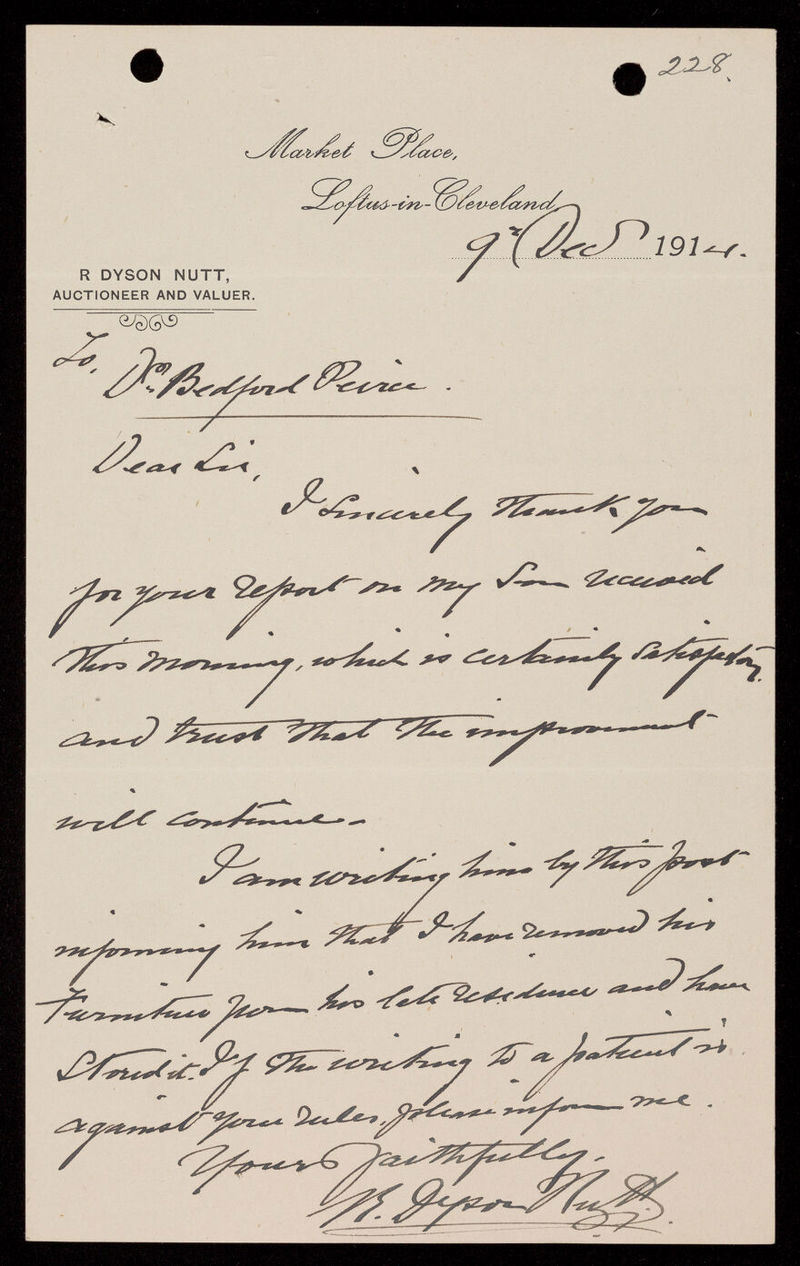 228.
Market Place,
Loftus-in-Cleveland
9th Decr 1914.
R DYSON NUTT,
AUCTIONEER AND VALUER.
To,
Dr. Bedford Peirce.
Dear Sir,
I Sincerely thank you
for your report on my Son received
this morning, which is certainly Satisfactory.
and trust that the improvement
will continue -
I am writing him by this post
informing him that I have removed his
Furniture from his late residence and have
Stored it. If the writing to a patient is
against your rules, please inform me.
Yours faithfully.
R. Dyson Nutt.